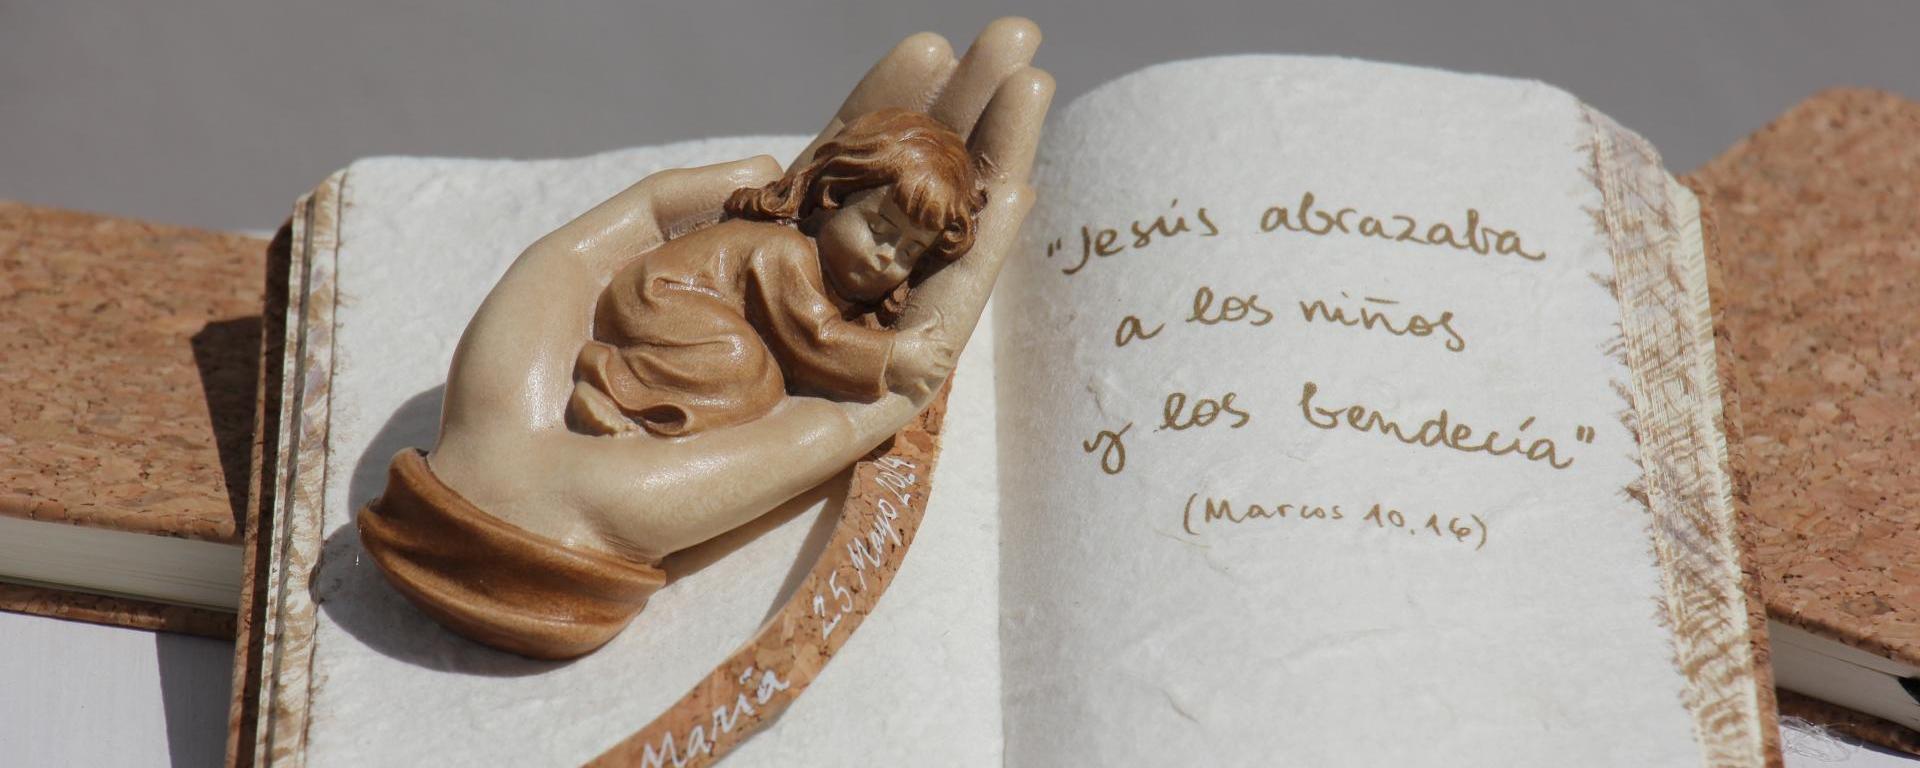 María 25 Mayo 2024
"Jesús abrazaba
a los niños
y los bendecía"
(Marcos 10.16)